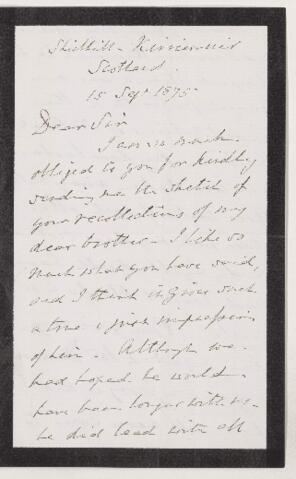 Shielhill - Kirriemuir
Scotland.
15 Sept 1875.
Dear Sir
I am so much
obliged to you for kindly
sending me the sketch of
your recollections of my
dear brother - I like so
much what you have said,
and I think it gives such
a true & just impression
of him. Although we
had hoped he would
have been longer with us -
he did lead with all